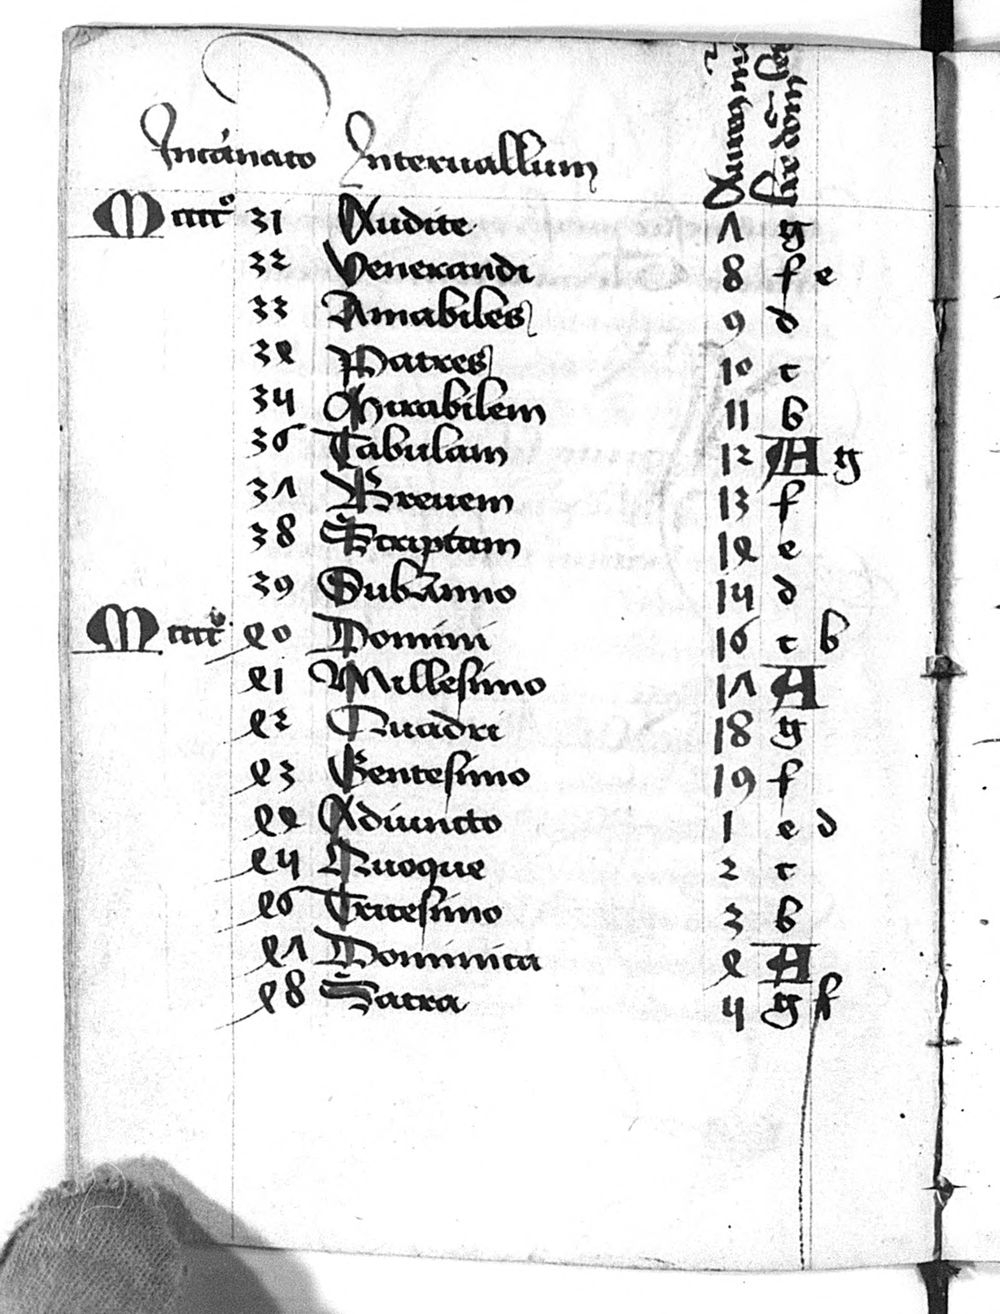 Incānacio Interuallum
Mcccc° 31 Audite 7 g
32 Venerandi 8 f e
33 Amabiles 9 d
34 Patres 10 c
35 Mirabilem 11 b
36 Tabulam 12 A g
37 Breuem 13 f
38 Scriptam 14 e
39 Sub Anno 15 d
Mcccc° 40 Domini 16 c b
41 Millesimo 17 A
42 Quadri 18 g
43 Gentesimo 19 f
44 Adiuncto 1 e d
45 Quoque 2 c
46 Tricesimo 3 b
47 Dominica 4 A
48 Sacra 5 g f